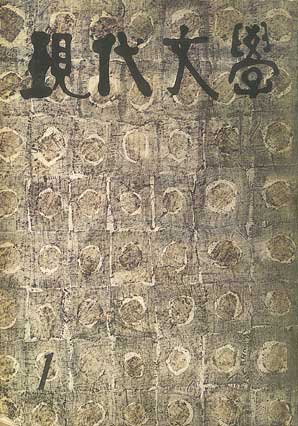 現代文學
1